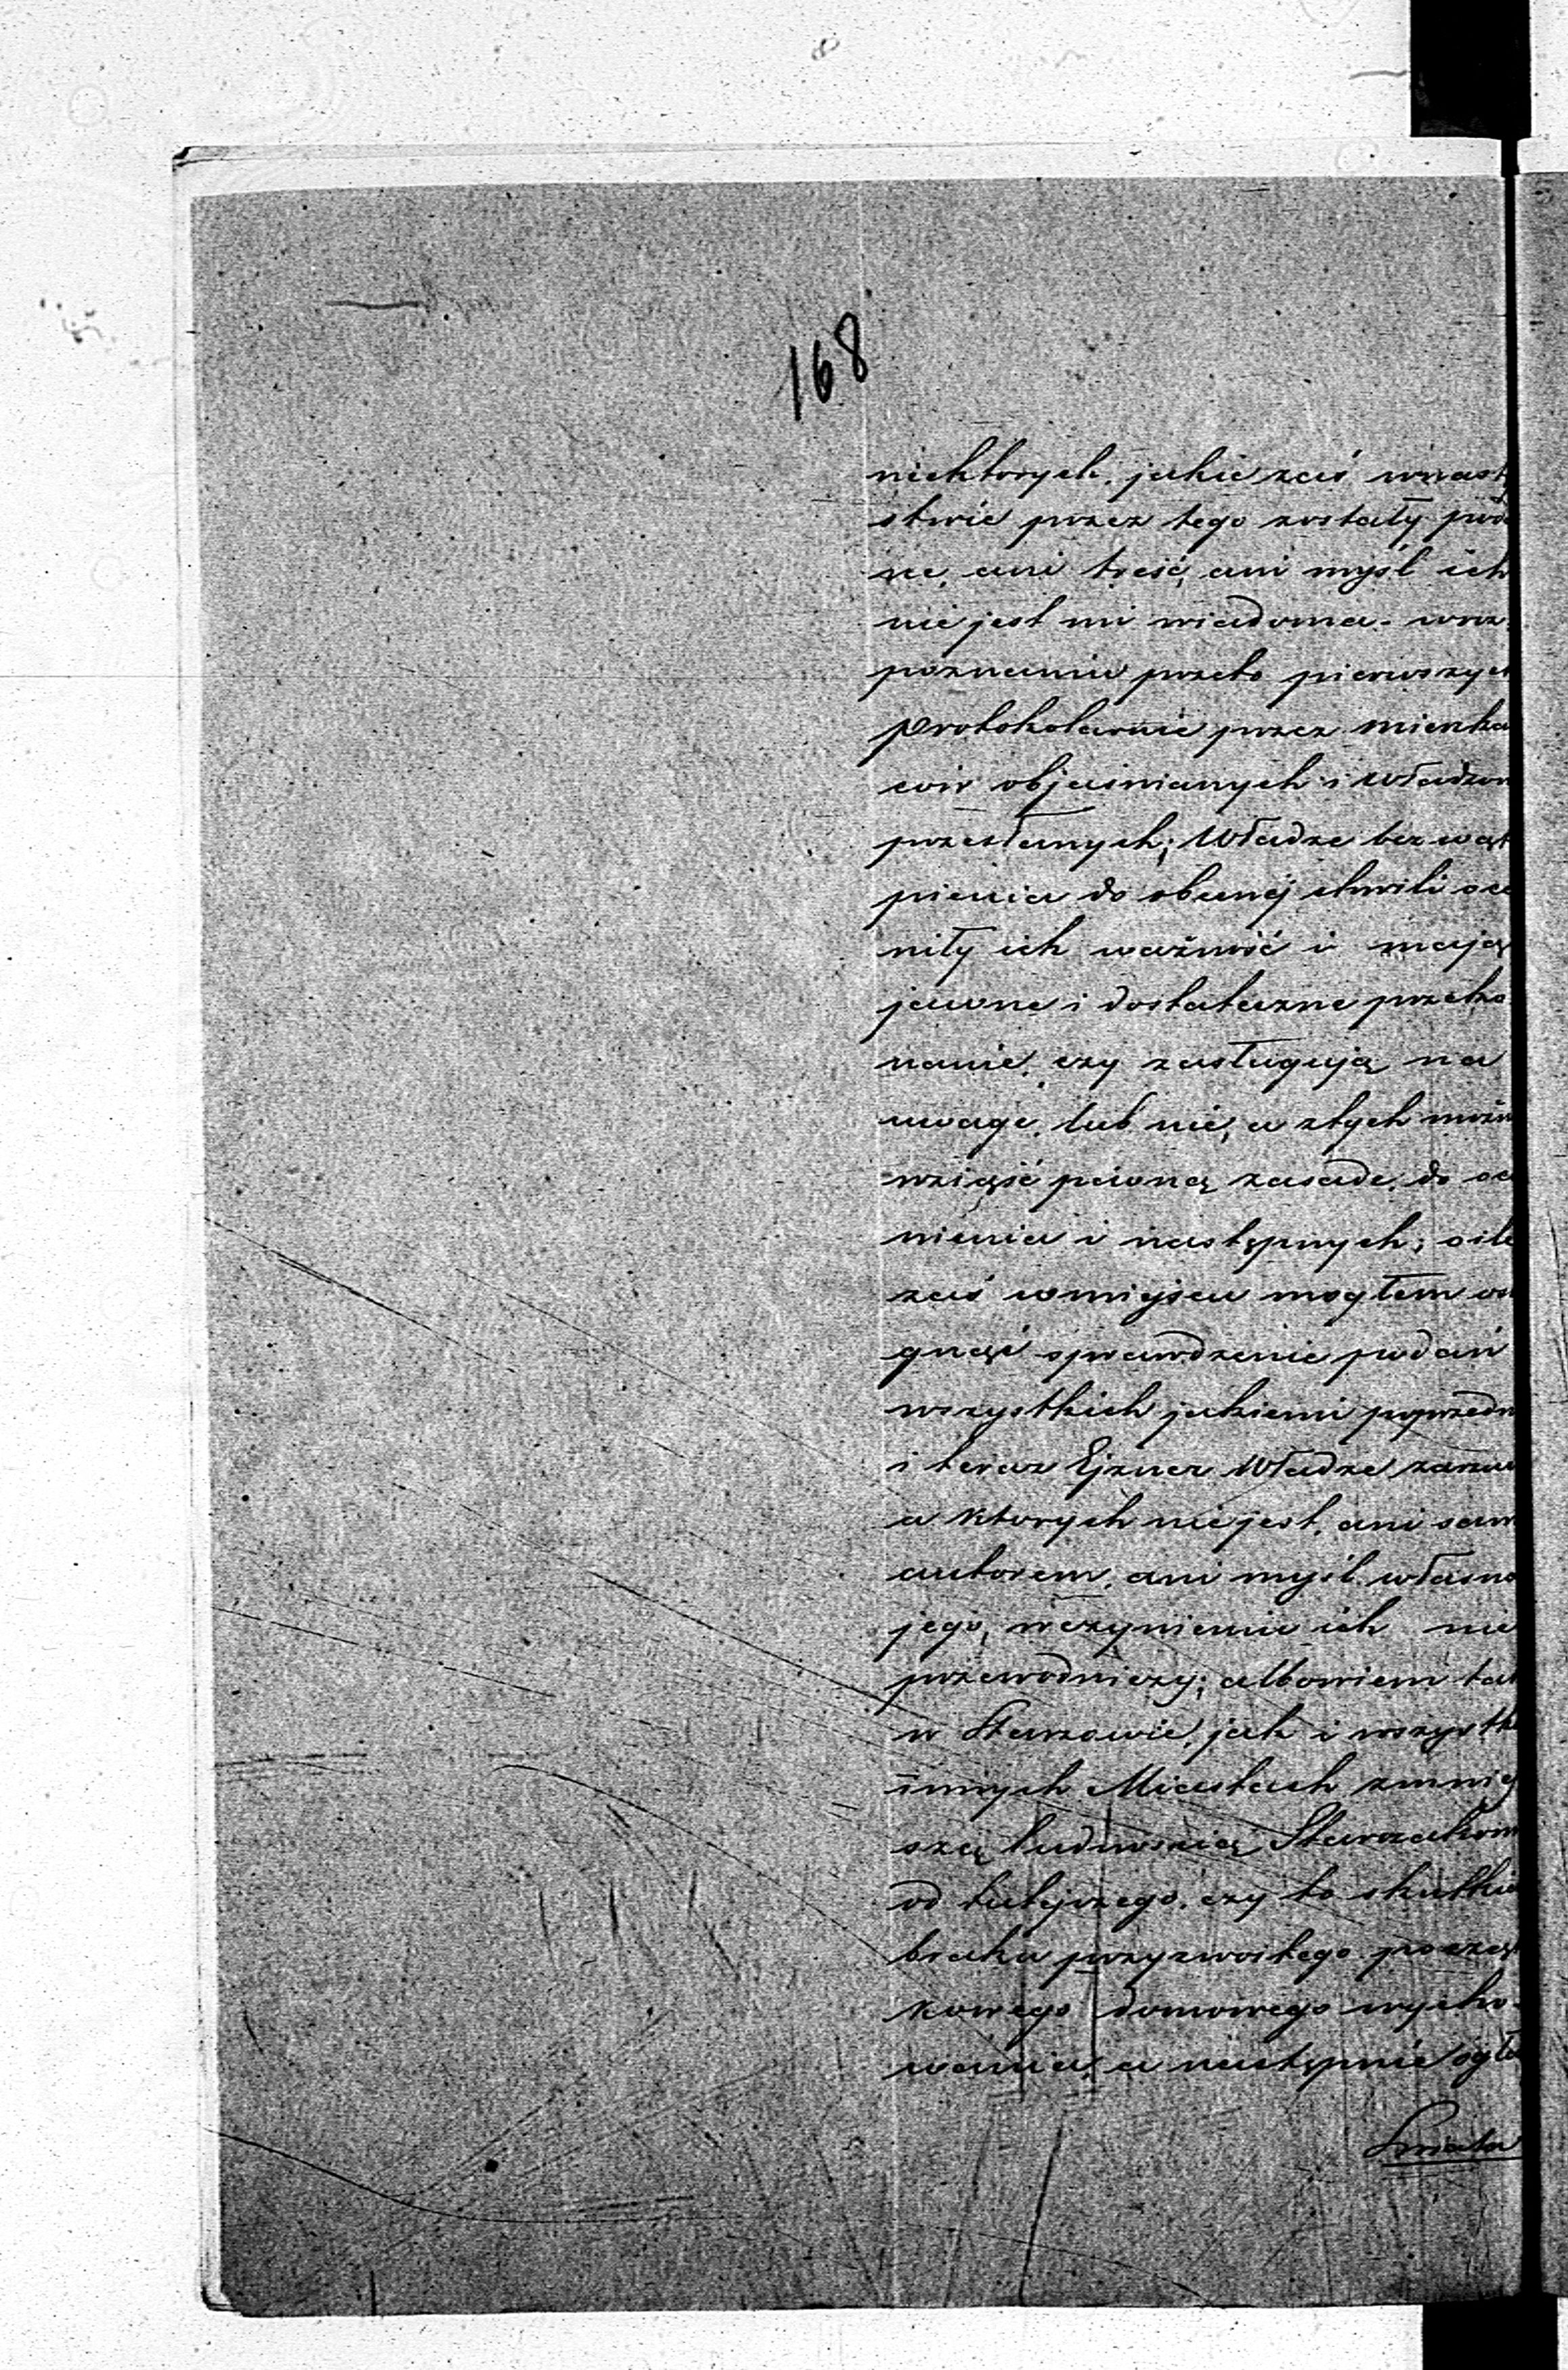 168
niektorych, jakie zaś wnast
stwie przez tego zostały pod
ne, ani treść, ani myśl ich
nie jest mi wiadoma - wroz
poznaniu przeto pierwszych
protokolarnie przez mienka
ców objaśnianych i Władzom
przesłanych; Władze bez wąt
pienia do obecnej chwili oce
niły ich ważność i mają
jawne i dostateczne przeko
nanie, czy zasługują na
uwagę, lub nie, a ztych możn
wziąść pewną zasadę do oce
nienia i następnych; o ile
zaś wmiejscu mogłem osi
gnąć sprawdzenie podań
wszystkich jakiemi poprzedn
i teraz Ejzner Władze zarzu
a ktorych nie jest, ani sam
autorem, ani myśl własna
jego, wczynieniu ich nie
przewodniczy; albowiem tak
w Starzowie, jak i wszystk
innych Miastach zmniej
szą ludnością Starozakonn
od tutejszego, czy to skutkie
braku przyzwoitego począt
kowego domowego wycho-
wania, a następnie ogła